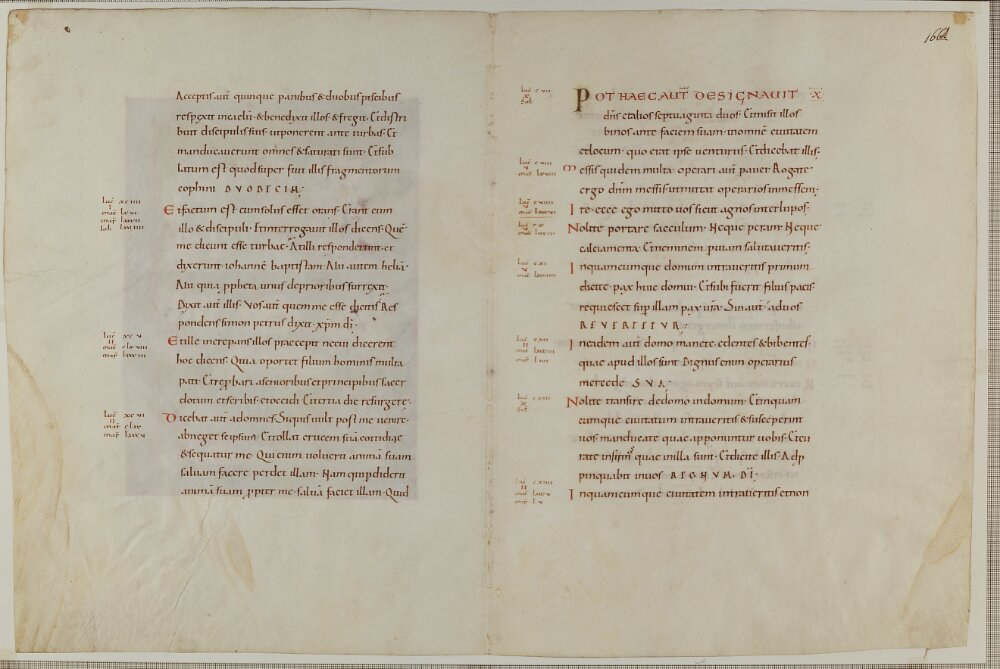 Acceptis aut quinque panibus & duobus piscibus
respexit incaelū · & benedixit illos & fregit · Et distri
buit discipulis suis utponerent ante turbas · Et
manducauerunt omnes & saturati sunt · Et sub
latum est quod super fuit illis fragmentorum
cophini DVODECIM ·
Et factum est cum solus esset orans · Erant cum
illo & discipuli · Et interrogauit illos dicens · Quē
me dicunt esse turbae · At illi responderunt et
dixerunt iohannē baptistam · Alii autem heliā ·
Alii quia ppheta unus deprioribus surrexit ·
Dixit aut illis · Vos aut quem me esse dicitis Res
pondens simon petrus dixit · xpm di ·
Et ille increpans illos praecepit necui dicerent
hoc dicens · Quia oportet filium hominis multa
pati · Et repbari asenioribus et principibus sacer
dotum et scribis · et occidi Et tertia die resurgere ·
Dicebat aut adomnes · Siquis uult post me uenire ·
abneget seipsum · Et tollat crucem suā cotidie
& sequatur me · Qui enim uoluerit animā suam
saluam facere perdet illam · Nam qui pdiderit
animā suam ppter me · saluā faciet illam · Quid
166
POT HAEC AUT DESIGNAUIT X
dns et alios septuaginta duos · Et misit illos
binos ante faciem suam · inomnē ciuitatem
et locum · quo erat ipse uenturus · Et dicebat illis ·
Messis quidem multa · operarii aut pauci · Rogate
ergo dnm messis ut mittat operarios in messem ·
Ite · ecce ego mitto uos sicut agnos inter lupos ·
Nolite portare sacculum · Neque peram · Neque
calciamenta · Et neminem p uiam salutaueritis ·
Inquamcumque domum intraueritis primum
dicite · pax huic domui · Et si ibi fuerit filius pacis
requiescet sup illam pax ura · Sin aut · aduos
REVERTETVR ·
In eadem aut domo manete · edentes & bibentes ·
quae apud illos sunt · Dignus enim operarius
mercede SVA ·
Nolite transire dedomo indomum · Et inquam
cumque ciuitatem intraueritis & susceperint
uos · manducate quae apponuntur uobis · Et cu
rate infirmos quae inilla sunt · Et dicite illis · Adp
pinquabit inuos REGNVM · DI ·
Inquamcumque ciuitatem intraueritis et non